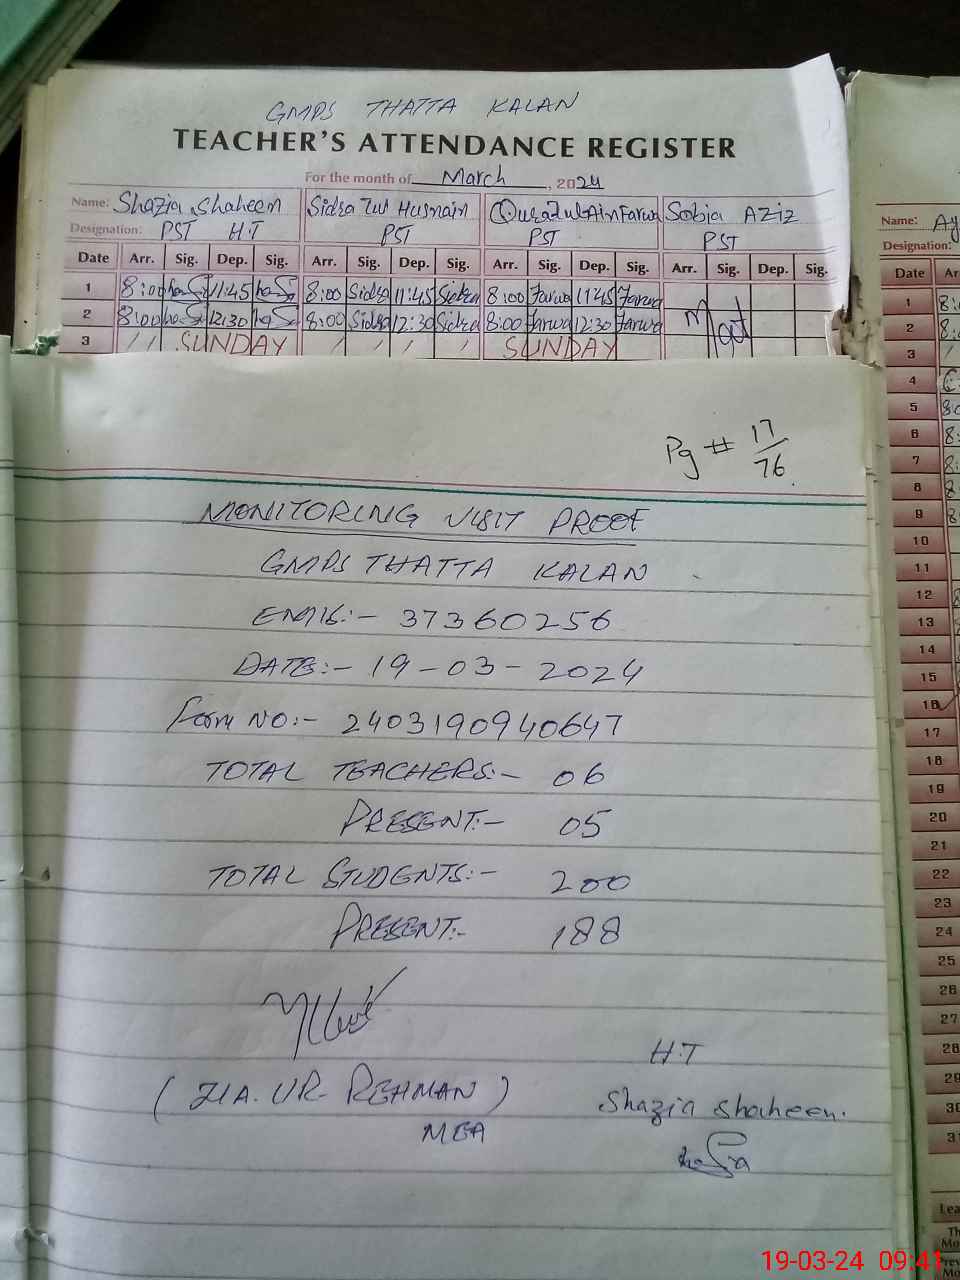 GMPS THATTA KALAN
TEACHER'S ATTENDANCE REGISTER
For the month of March, 2024
Name: Shazia Shaheen Sidra Tul Husnain Quratul Ain Farwa Sobia AZIZ
Designation: PST H.T PST PST PST
Date Arr. Sig. Dep. Sig. Arr. Sig. Dep. Sig. Arr. Sig. Dep. Sig. Arr. Sig. Dep. Sig.
1 8:00 11:45 8:00 Sidra 11:45 Sidra 8:00 Farwa 11:45 Farwa
2 8:00 12:30 8:00 Sidra 12:30 Sidra 8:00 Farwa 12:30 Farwa
3 SUNDAY SUNDAY
Mat
Pg # 17/76
MONITORING VISIT PROOF
GMPS THATTA KALAN
EMIS:- 37360256
DATE:- 19-03-2024
Form NO:- 2403190940647
TOTAL TEACHERS:- 06
PRESENT:- 05
TOTAL STUDENTS:- 200
PRESENT:- 188
(ZIA. UR. REHMAN)
MEA
H.T
Shazia Shaheen.
Name: Ay
Designation:
Date Ar
1 8:
2 8:
3
4
5 8:
6 8:
7 8:
8 8
9 8
10
11
12 8
13
14
15
16
17
18
19
20
21
22
23
24
25
26
27
28
29
30
31
Lea
19-03-24 09:41